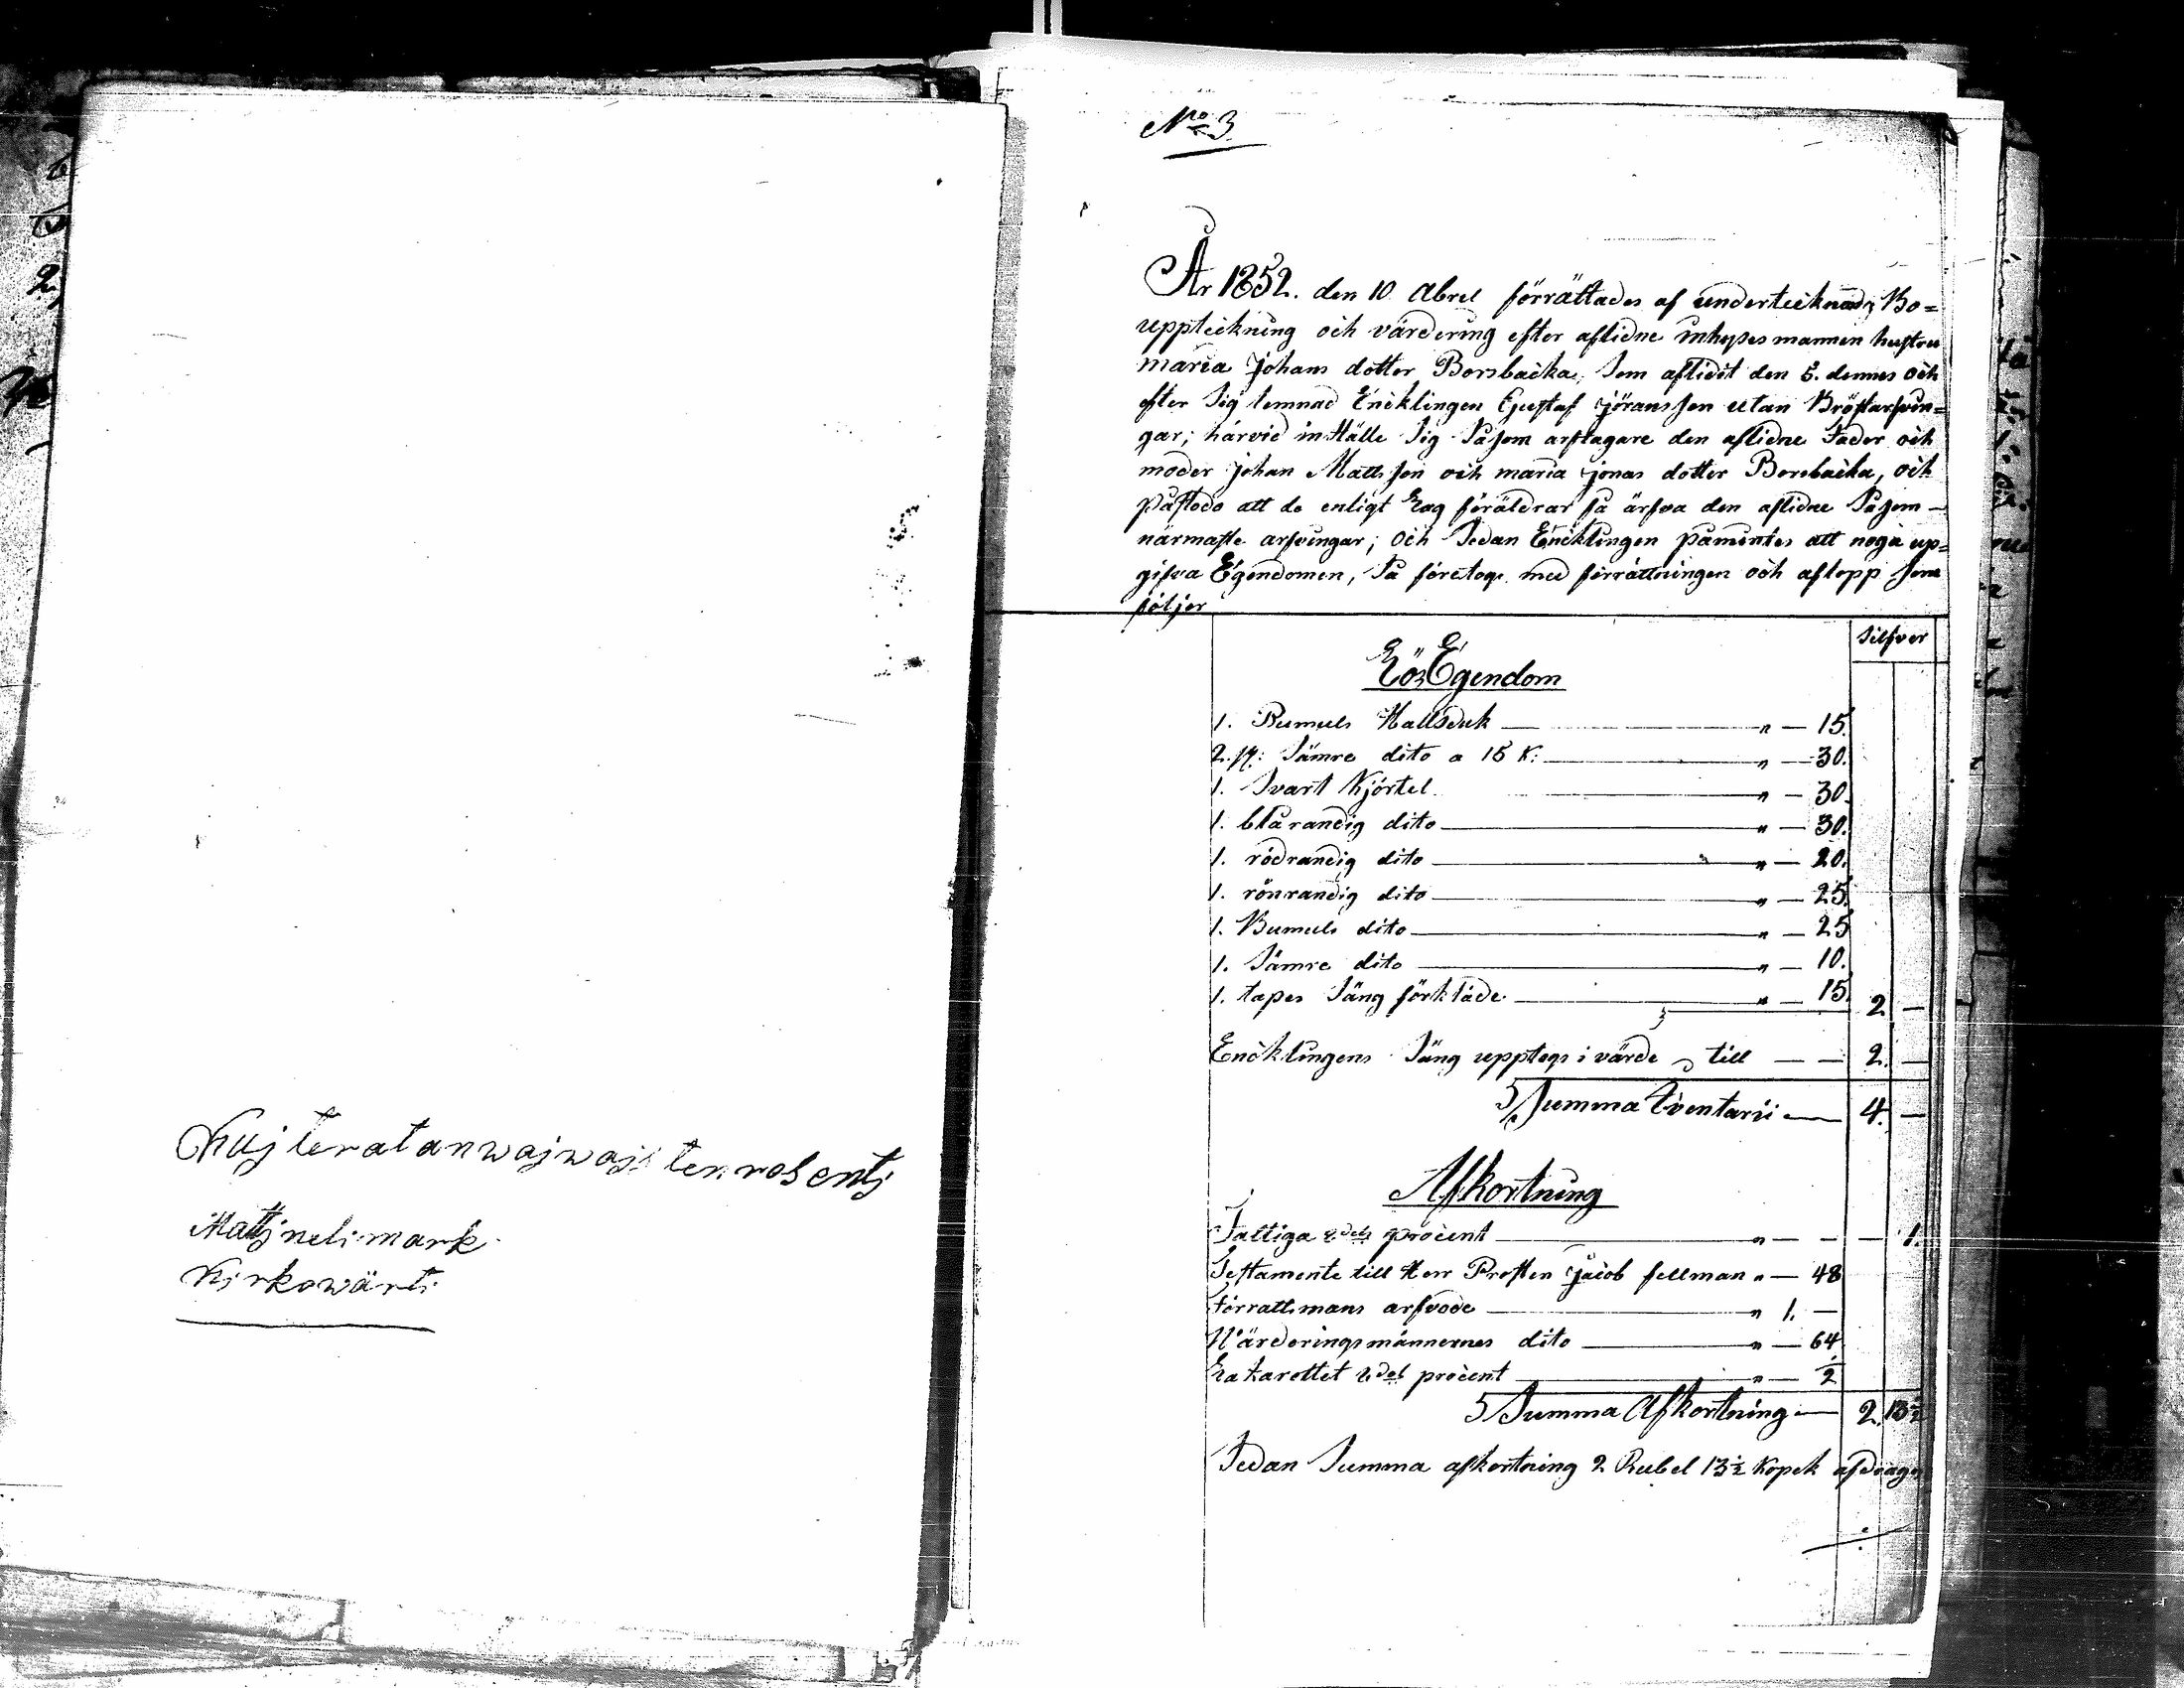 Kuj teratan waj waj ten rosentj
Mattj nelimark
Kirkowärti
No 3
År 1852. den 10 Abrel förrättades af undertecknad, Bo=
uppteckning och värdering efter aflidne inhyses mannen hustru
maria Johans dotter Borsbacka, Som aflidit den 5. dennes och
efter Sig lemnad Encklingen Gustaf Jöransson utan Bröstarfvin=
gar; härvid instälte Sig Såsom arftagare den aflidne Fader och
moder Johan Mattsson och maria Jonas dotter Borsbacka, och
påstodo att de enligt Lag föräldrar få ärfva den aflidne Såsom
närmaste arfvingar; och Sedan Encklingen påmintes att noga up=
gifva Egendomen, Så företogs med förrättningen och aflopp Som
följer
Silfver
Lös Egendom
1. Bumuls Hallsduk — " — 15.
2. st: Sämre dito a 15 K: — " — 30.
1. Svart Kjörtel — " — 30.
1. blårandig dito — " — 30.
1. rödrandig dito — " — 20.
1. rönrandig dito — " — 25.
1. Bumuls dito — " — 25
1. Sämre dito — " — 10.
1. tapes Säng förkläde — " — 15. 2 —
Encklingens Säng upptogs i värde till — — 2. —
Summa Eventarii — 4. —
Afkortning
Fattiga 4dels procent — " — — — 1.
Testamente till Herr Prosten Jacob fellman " — 48
Förrattsmans arfvode — " 1. —
Värderingsmännernes dito — " — 64
Lazarettet 8dels procent — " — 1/2
Summa Afkortning — 2. 13 1/2
Sedan Summa afkortning 2 Rubel 13 1/2 Kopek afdrags